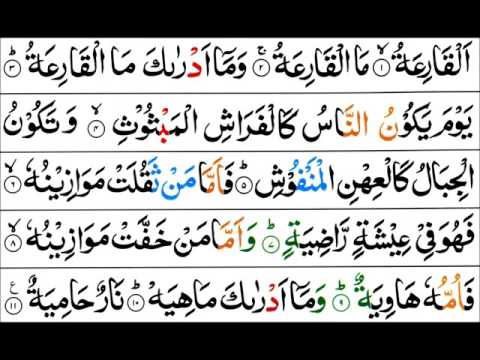 اَلْقَارِعَةُ ۙ‏﴿۱﴾ مَا الْقَارِعَةُ ۚ‏﴿۲﴾ وَمَاۤ اَدْرٰىكَ مَا الْقَارِعَةُ ؕ‏﴿۳﴾
يَوْمَ يَكُوْنُ النَّاسُ كَالْفَرَاشِ الْمَبْثُوْثِ ۙ‏﴿۴﴾ وَتَكُوْنُ
الْجِبَالُ كَالْعِهْنِ الْمَنْفُوْشِ ؕ‏﴿۵﴾ فَاَمَّا مَنْ ثَقُلَتْ مَوَازِيْنُهٗ ۙ‏﴿۶﴾
فَهُوَ فِيْ عِيْشَةٍ رَّاضِيَةٍ ؕ‏﴿۷﴾ وَاَمَّا مَنْ خَفَّتْ مَوَازِيْنُهٗ ۙ‏﴿۸﴾
فَاُمُّهٗ هَاوِيَةٌ ؕ‏﴿۹﴾ وَمَاۤ اَدْرٰىكَ مَاهِيَهْ ؕ‏﴿۱۰﴾ نَارٌ حَامِيَةٌ ‏﴿۱۱﴾ ع